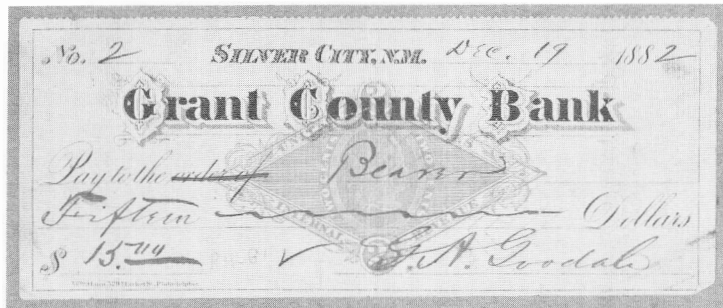 No. 2 SILVER CITY, N.M. Dec. 19 1882
Grant County Bank
Pay to the order of Bearer
Fifteen Dollars
$ 15.00 G. A. Goodale